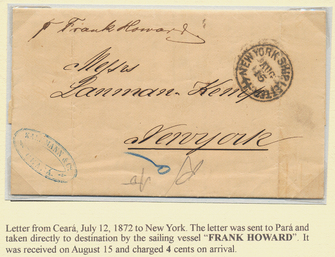 p Frank Howard
NEW YORK SHIP LETTER
AUG
15
Messrs
Lanman & Kemp
Newyork
Letter from Ceará, July 12, 1872 to New York. The letter was sent to Pará and
taken directly to destination by the sailing vessel “FRANK HOWARD”. It
was received on August 15 and charged 4 cents on arrival.